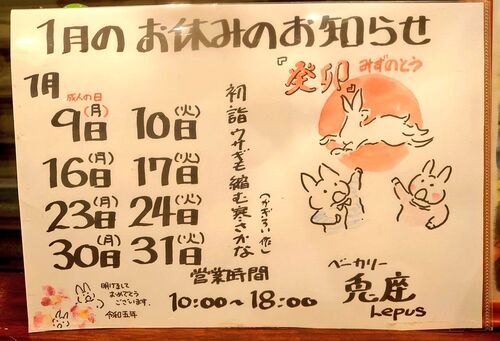 1月の お休みのお知らせ
1月
成人の日
9日(月) 10日(火)
16日(月) 17日(火)
23日(月) 24日(火)
30日(月) 31日(火)
初詣ウサギも縮む寒さかな
『癸卯』みずのとう
営業時間
10:00～18:00
ベーカリー
兎座
Lepus
明けまして
おめでとう
ございます。
令和五年